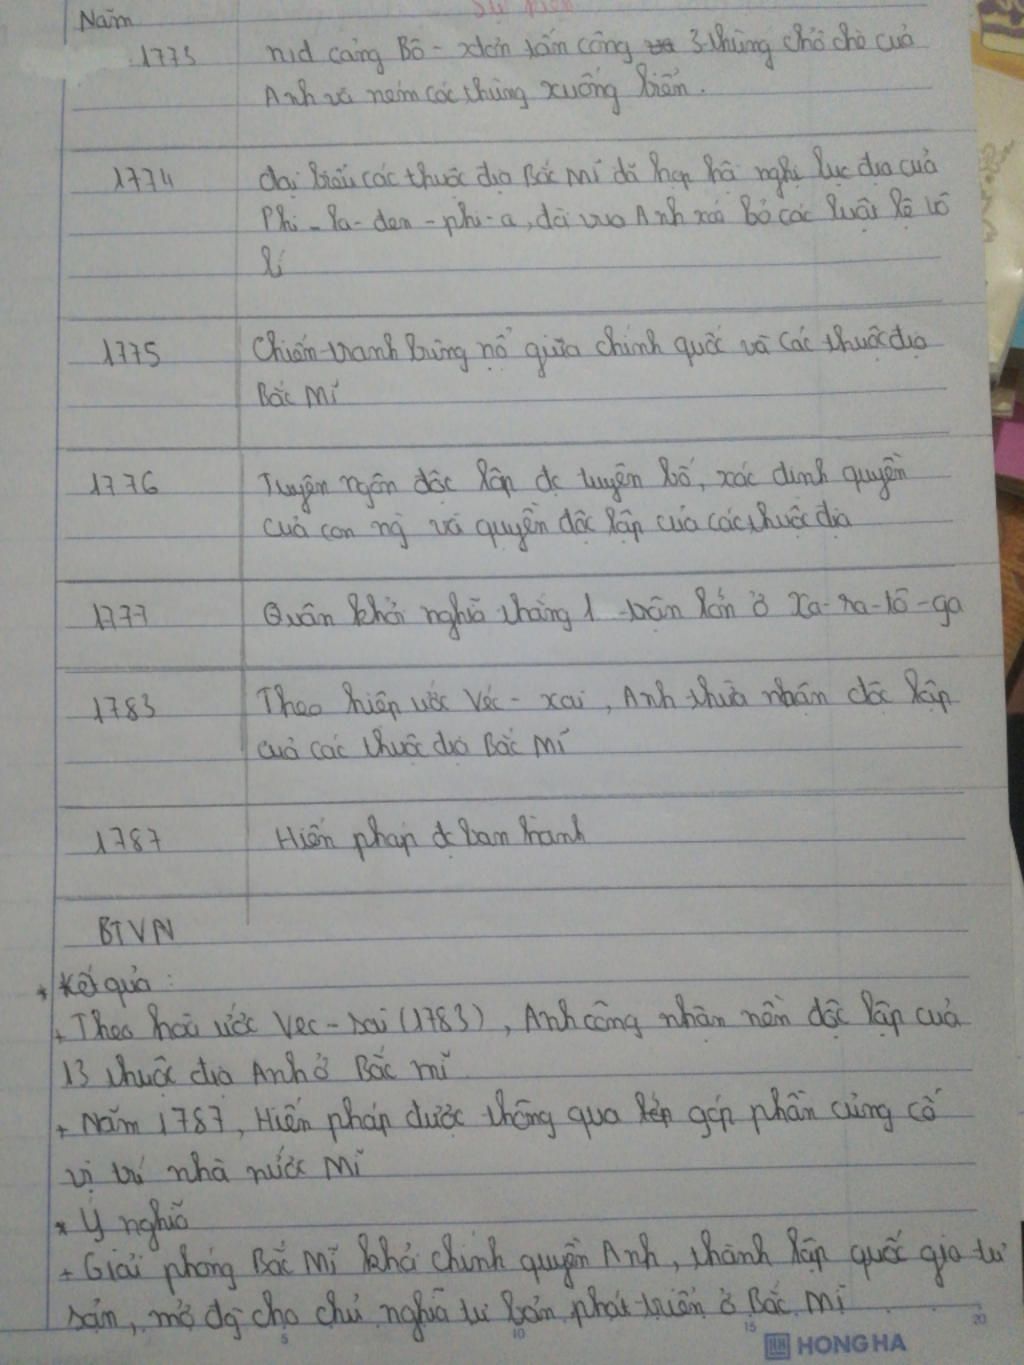 Năm Sự kiện
1773 nd cảng Bô - xtơn tấn công 3 thùng chở chè của
Anh và ném các thùng xuống biển.
1774 đại biểu các thuộc địa Bắc Mĩ đã họp hội nghị lục địa của
Phi - la - đen - phi - a, đòi vua Anh xóa bỏ các luật lệ vô
lí
1775 Chiến tranh bùng nổ giữa chính quốc và các thuộc địa
Bắc Mĩ
1776 Tuyên ngôn độc lập đc tuyên bố, xác định quyền
của con ng và quyền độc lập của các thuộc địa
1777 Quân khởi nghĩa thắng 1 trận lớn ở Xa - ra - tô - ga
1783 Theo hiệp ước Véc - xai, Anh thừa nhận độc lập
của các thuộc địa Bắc Mĩ
1787 Hiến pháp đc ban hành
BTVN
* Kết quả:
+ Theo hoà ước Vec - sai (1783), Anh công nhận nền độc lập của
13 thuộc địa Anh ở Bắc mĩ
+ Năm 1787, Hiến pháp được thông qua góp phần củng cố
vị trí nhà nước Mĩ
* Ý nghĩa
+ Giải phóng Bắc Mĩ khỏi chính quyền Anh, thành lập quốc gia tư
sản, mở đg cho chủ nghĩa tư bản phát triển ở Bắc Mĩ
5 10 15 20
HONG HA